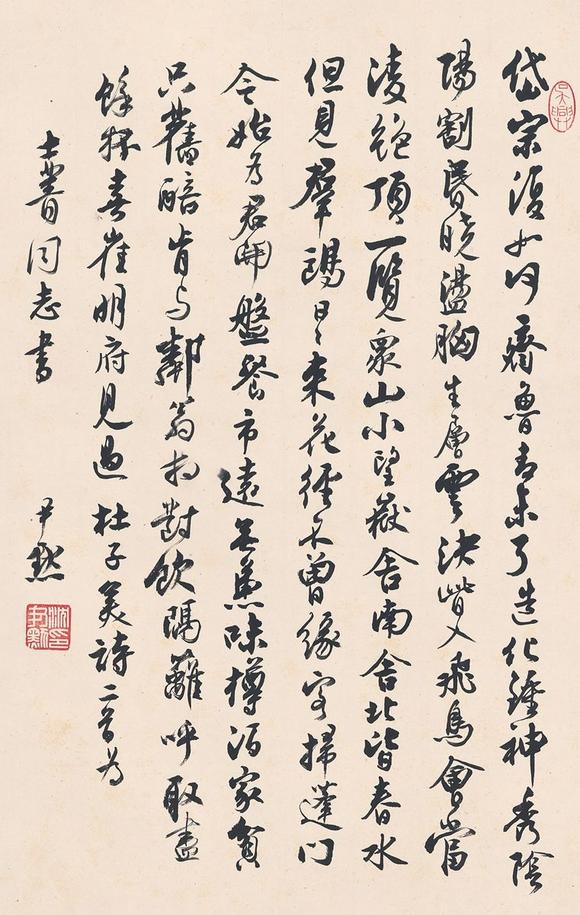 岱宗復如何齊魯青未了造化鍾神秀陰
陽割昏曉盪胸生層雲決眥入飛鳥會當
凌絕頂一覽眾山小望嶽舍南舍北皆春水
但見羣鷗日〻來花徑不曾緣客掃蓬門
今始為君開盤飱市遠無兼味樽酒家貧
只舊醅肯與鄰翁相對飲隔籬呼取盡
餘杯喜崔明府見過 杜子美詩二首為
士菁同志書 尹默
吳興
沈印尹默